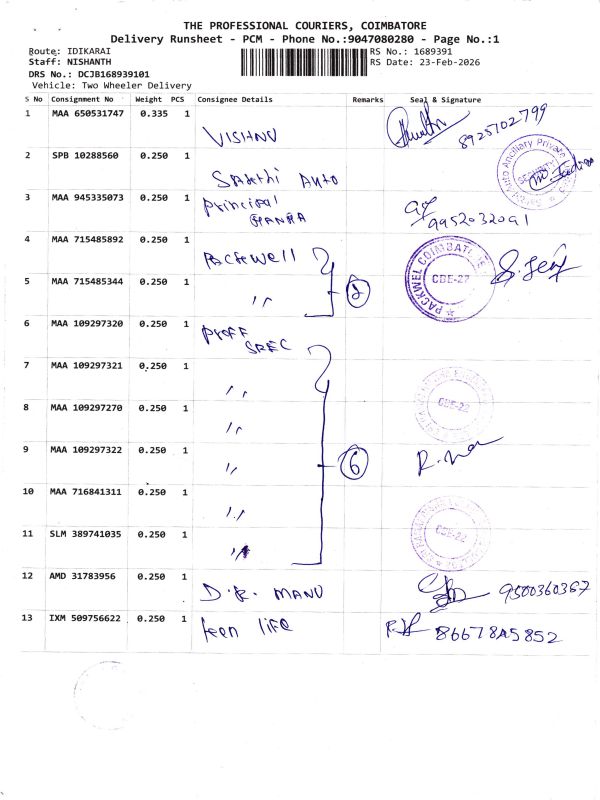 THE PROFESSIONAL COURIERS, COIMBATORE
Delivery Runsheet - PCM - Phone No.:9047080280 - Page No.:1
Route: IDIKARAI
RS No.: 1689391
Staff: NISHANTH
RS Date: 23-Feb-2026
DRS No.: DCJB168939101
Vehicle: Two Wheeler Delivery
S No Consignment No Weight PCS Consignee Details Remarks Seal & Signature
1 MAA 650531747 0.335 1 VISHNU 8925702799
2 SPB 10288560 0.250 1 SAKTHI AUTO
Auto Ancillary Private
SECURITY
3 MAA 945335073 0.250 1 principal
9952032091
4 MAA 715485892 0.250 1 PACKWELL
PACKWEL COIMBATORE
CBE-27
5 MAA 715485344 0.250 1 ,, 2
6 MAA 109297320 0.250 1 proff
SPEC
7 MAA 109297321 0.250 1 ,,
CBE-22
8 MAA 109297270 0.250 1 ,,
9 MAA 109297322 0.250 1 ,, 6
10 MAA 716841311 0.250 1 ,,
11 SLM 389741035 0.250 1 ,,
CBE-22
12 AMD 31783956 0.250 1 D.K. MANU 9500360367
13 IXM 509756622 0.250 1 teen life